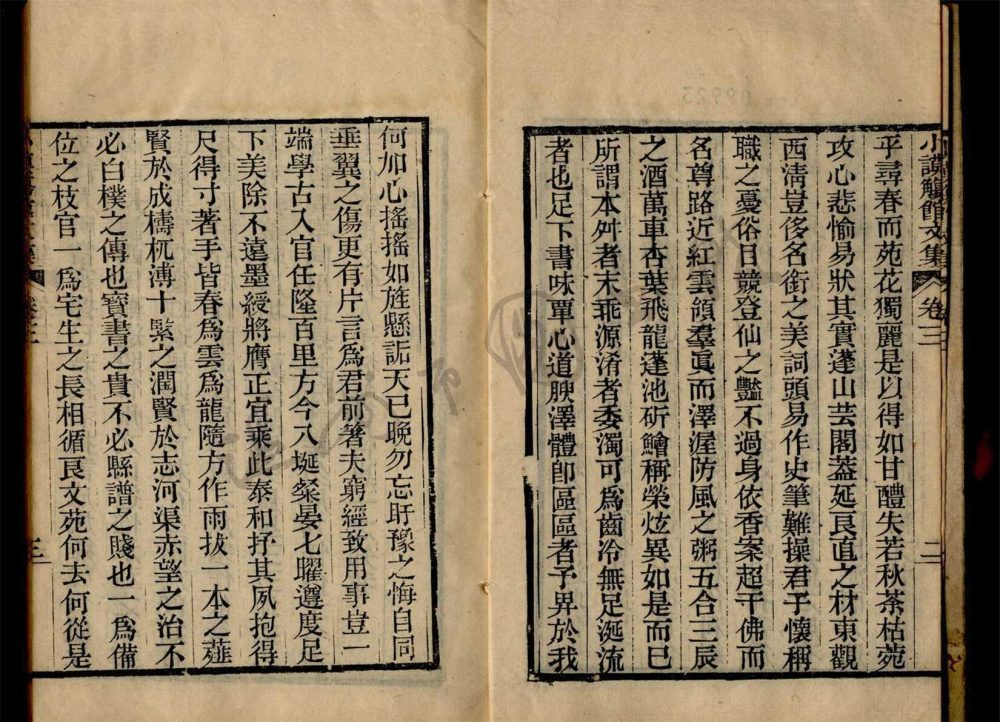 小謨觴館文集 卷三 二
乎尋春而苑花獨麗是以得如甘醴失若秋荼枯菀
攻心悲愉易狀其實蓬山芸閣蓋延良直之材東觀
西淸豈侈名銜之美詞頭易作史筆難操君子懷稱
職之憂俗日競登仙之豔不過身依香案超千佛而
名尊路近紅雲領羣眞而澤渥防風之粥五合三辰
之酒萬車杏葉飛龍蓬池斫鱠稱榮炫異如是而已
所謂本舛者末乖源淆者委濁可爲齒冷無足涎流
者也足下書味覃心道腴澤體卽區區者予畀於我
何加心搖搖如旌懸詬天已晚勿忘盱豫之悔自同
垂翼之傷更有片言爲君前箸夫窮經致用事豈一
端學古入官任隆百里方今八埏粲晏七曜遵度足
下美除不遠墨綬將膺正宜乘此泰和抒其夙抱得
尺得寸著手皆春爲雲爲龍隨方作雨拔一本之薤
賢於成檮杌溥十縣之潤賢於志河渠赤望之治不
必白樸之傳也寶書之貴不必縣譜之賤也一爲備
位之枝官一爲宅生之長相循良文苑何去何從是
卷三 三